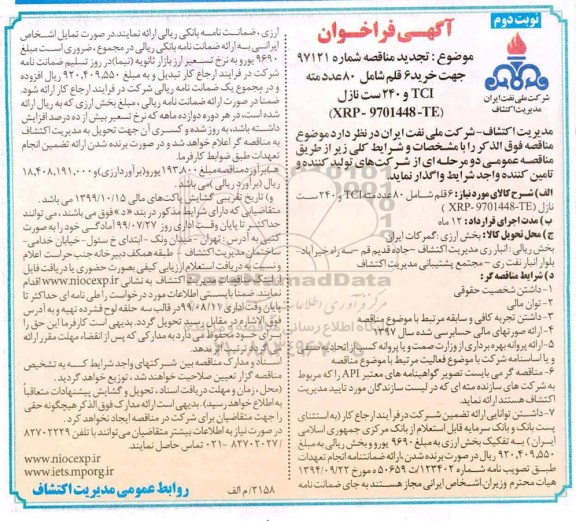 نوبت دوم
آگهی فراخوان
شرکت ملی نفت ایران
مدیریت اکتشاف
موضوع : تجدید مناقصه شماره ۹۷۱۲۱
جهت خرید۶ قلم شامل ۸۰عدد مته
TCI و۲۴۰ ست نازل
(XRP- 9701448-TE)
مدیریت اکتشاف-شرکت ملی نفت ایران در نظر دارد موضوع
مناقصه فوق الذکر را با مشخصات و شرایط کلی زیر از طریق
مناقصه عمومی دو مرحله ای از شرکت‌های تولید کننده و
تامین کننده واجد شرایط واگذار نماید.
الف) شرح کالای مورد نیاز: ۶قلم شامل ۸۰ عددمتهTCI و۲۴۰ ست
نازل (XRP- 9701448-TE )
ب) مدت اجرای قرارداد: ۱۲ ماه
ج) محل تحویل کالا: بخش ارزی :گمرکات ایران
بخش ریالی :انبار ری مدیریت اکتشاف -جاده قدیم قم -سه راه خیر آباد-
بلوار انبار نفت ری -مجتمع پشتیبانی مدیریت اکتشاف
د) شرایط مناقصه گر:
۱-داشتن شخصیت حقوقی
۲- توان مالی
۳- داشتن تجربه کافی و سابقه مرتبط با موضوع مناقصه
۴- ارائه صورتهای مالی حسابرسی شده سال ۱۳۹۷
۵- ارائه پروانه بهره برداری از وزارت صمت و یا پروانه کسب از اتحادیه صنفی
و یا اساسنامه شرکت با موضوع فعالیت مرتبط با موضوع مناقصه
۶- مناقصه گر می بایست تصویر گواهینامه های معتبر API را که مربوط
به شرکت های سازنده مته ای که در لیست سازندگان مورد تایید مدیریت
اکتشاف هستند ارائه نماید.
۷-داشتن توانایی ارائه تضمین شرکت در فرآیند ارجاع کار (به استثنای
پست بانک و بانک سرمایه قابل استعلام از بانک مرکزی جمهوری اسلامی
ایران ) به تفکیک بخش ارزی به مبلغ ۹۶۹۰ یورو و بخش ریالی به مبلغ
۹۲۰,۴۰۹,۵۵۰ ریال در صورت برنده شدن ،ارائه ضمانتنامه انجام تعهدات
طبق تصویب نامه شماره ۱۲۳۴۰۲/ت۵۰۶۵۹ ه مورخ ۱۳۹۴/۰۹/۲۲
هیات محترم وزیران.اشخاص ایرانی مجاز هستند به جای ضمانت نامه
ارزی ، ضمانت نامه بانکی ریالی ارائه نمایند.در صورت تمایل اشخاص
ایرانی به ارائه ضمانت نامه بانکی ریالی در مجموع ، ضروری است مبلغ
۹۶۹۰ یورو به نرخ تسعیر ارز بازار ثانویه (نیما)در روز تسلیم ضمانت نامه
شرکت در فرآیند ارجاع کار تبدیل و به مبلغ ۹۲۰,۴۰۹,۵۵۰ ریال افزوده
و در مجموع یک ضمانت نامه ریالی شرکت در فرآیند ارجاع کار ارائه شود.
ضمنا در صورت ارائه ضمانت نامه ریالی ، مبلغ بخش ارزی که به ریال ارائه
شده است، در هر دوره دوازده ماهه که نرخ تسعیر بیش از ده درصد افزایش
داشته باشد، به روز شده و کسری آن جهت تحویل به مدیریت اکتشاف
به مناقصه گر اعلام خواهد شد و در صورت برنده شدن ارائه تضمین انجام
تعهدات طبق ضوابط کارفرما.
هـ)برآورد مناقصه مبلغ ۱۹۳,۸۰۰ یورو(برآوردارزی)و ۱۸,۴۰۸,۱۹۱,۰۰۰
ریال (برآورد ریالی )می باشد.
و) تاریخ تقریبی گشایش پاکت‌های مالی ۱۳۹۹/۱۰/۱۵ می باشد.
متقاضیانی که دارای شرایط مذکور در بند «د» فوق می باشند، می توانند
حداکثر تا پایان وقت اداری روز ۹۹/۰۷/۲۷ آمادگی خود را به صورت
کتبی به آدرس : تهران - میدان ونک - ابتدای خ سئول - خیابان خدامی-
ساختمان مدیریت اکتشاف - طبقه همکف دبیرخانه جنب حراست اعلام
و نسبت به دریافت استعلام ارزیابی کیفی بصورت حضوری یا دریافت فایل
از لینک مناقصات مدیریت اکتشاف به نشانی www.niocexp.ir اقدام
نمایند. ضمنا بایستی اطلاعات مورد درخواست را طی نامه ای حداکثر تا
پایان وقت اداری ۹۹/۰۸/۱۱ در قالب سه حلقه لوح فشرده تهیه و به آدرس
فوق الاشاره در مقابل رسید تحویل گردد. بدیهی است کارفرما این حق را
برای خود محفوظ می دارد به مدارکی که پس از انقضاء مهلت مقرر ارائه
می گردد ترتیب اثر ندهد.
اسناد و مدارک مناقصه بین شرکتهای واجد شرایط کـه به تشخیص
مناقصه گزار تعیین صلاحیت خواهند شد ، توزیع خواهد گردید.
(محل ،زمان و مهلت دریافت اسناد ، تحویل و گشایش پیشنهادات متعاقباً
به اطلاع خواهد رسید). بدیهی است ارائه مدارک فوق الذکر هیچگونه حقی
را جهت متقاضیان برای شرکت در مناقصه ایجاد نخواهد کرد.
در صورت نیاز به اطلاعات بیشتر متقاضیان می توانند با تلفن ۸۲۷۰۲۲۳۹
۰۲۱- ۸۲۷۰۲۰۲۷/ تماس حاصل نمایند.
www.niocexp.ir
www.iets.mporg.ir
۲۱۵۸/ م الف
روابط عمومی مدیریت اکتشاف